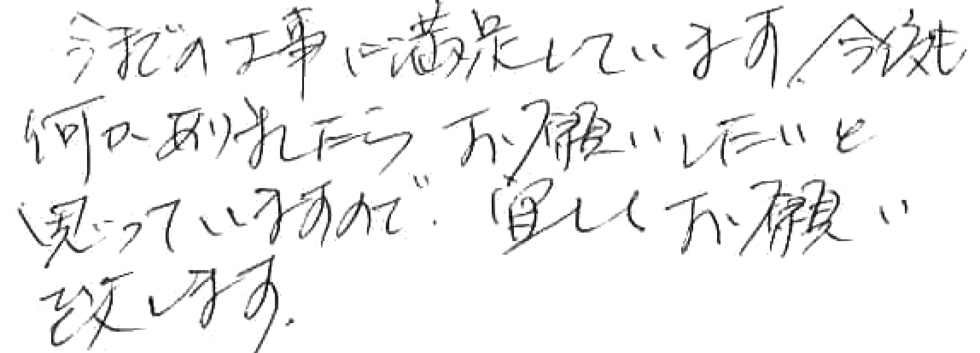 今までの工事に満足しています。今後も
何かありましたらお願いしたいと
思っていますので、宜しくお願い
致します。